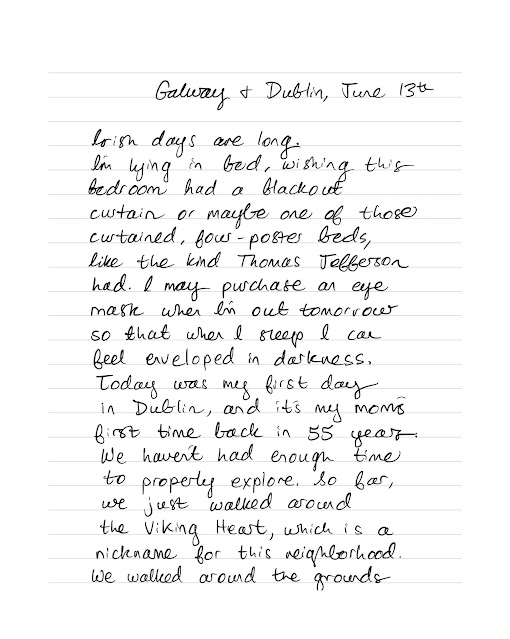 Galway & Dublin, June 13th
Irish days are long.
I'm lying in bed, wishing this
bedroom had a blackout
curtain or maybe one of those
curtained, four-poster beds,
like the kind Thomas Jefferson
had. I may purchase an eye
mask when I'm out tomorrow
so that when I sleep I can
feel enveloped in darkness.
Today was my first day
in Dublin, and it's my mom's
first time back in 55 years.
We haven't had enough time
to properly explore. So far,
we just walked around
the Viking Heart, which is a
nickname for this neighborhood.
We walked around the grounds